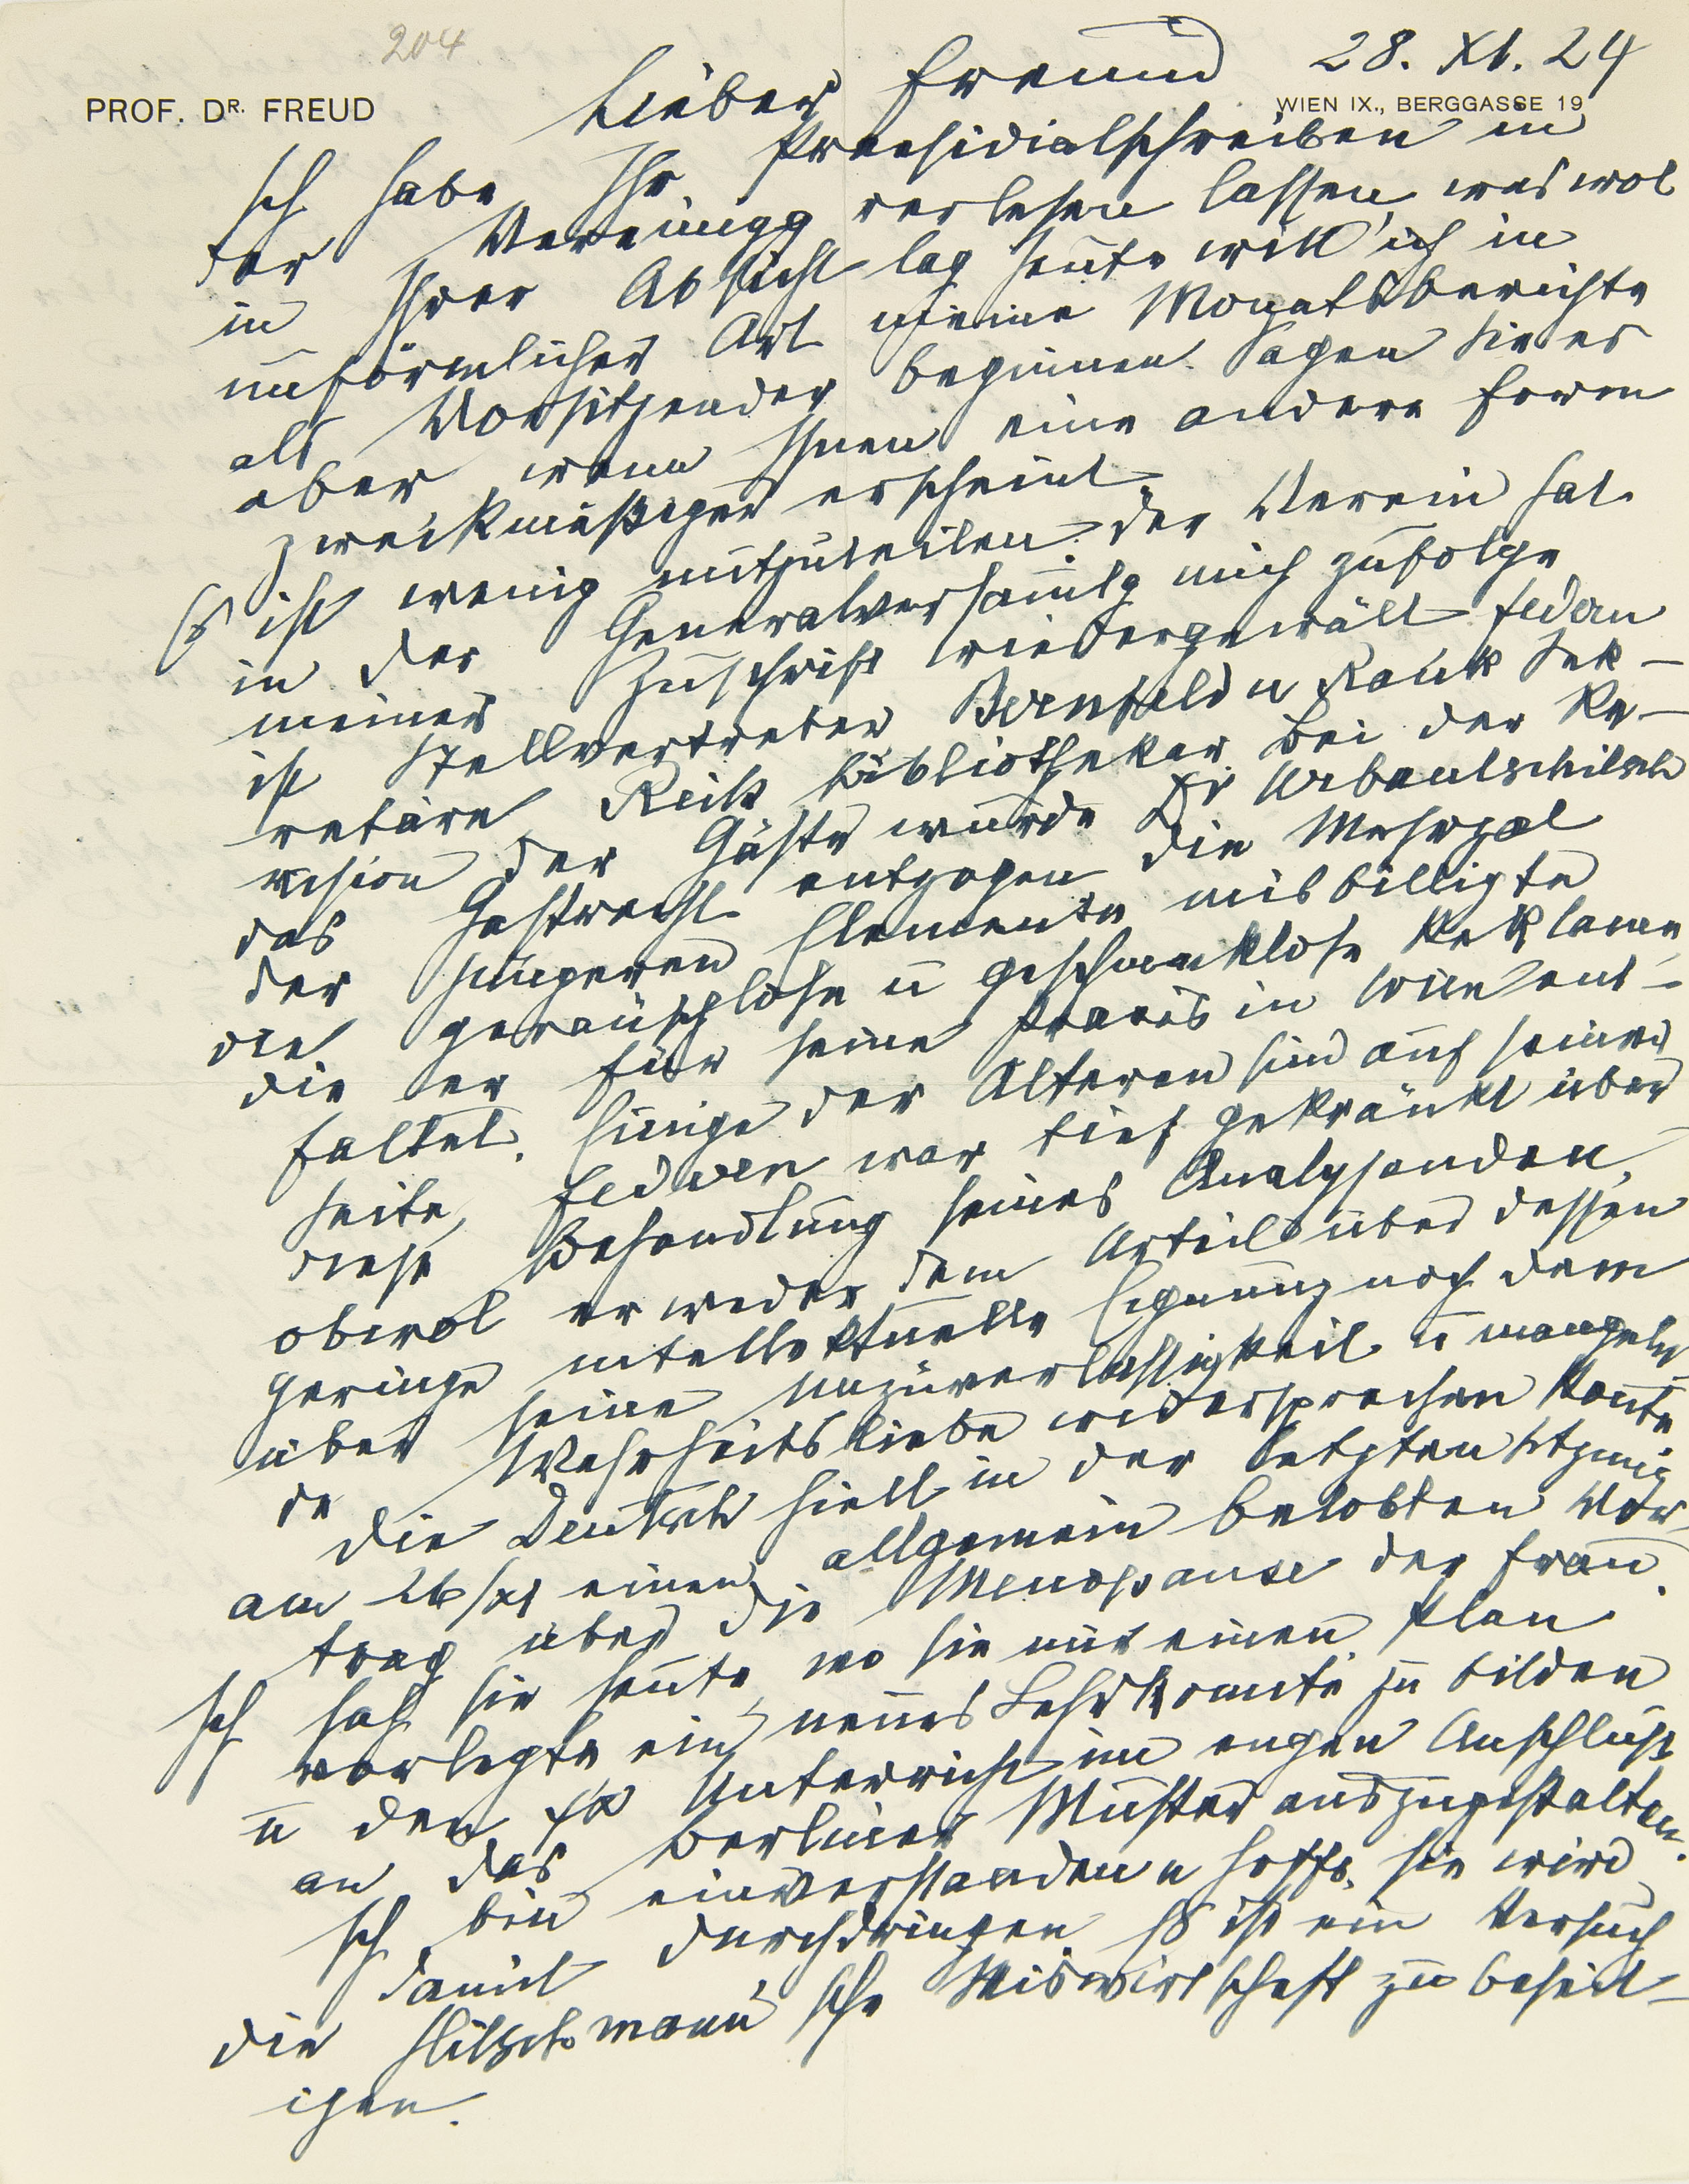 204
28. XI. 24
PROF. DR. FREUD
WIEN IX., BERGGASSE 19
Lieber Freund
Ich habe Ihr Praesidialschreiben in
der Vereinigg verlesen lassen, was wol
in Ihrer Absicht lag heute will ich in
unförmlicher Art meine Monatsberichte
als Vorsitzender beginnen. Sagen Sie es
aber wenn Ihnen eine andere Form
zweckmäßiger erscheint
Es ist wenig mitzuteilen. Der Verein hat
in der Generalversamlg mich zufolge
meiner Zuschrift wiedergewält Federn
ist Stellvertreter Bernfeld u Rank Sek-
retäre Reik Bibliothekar Bei der Re-
vision der Gäste wurde Dr Urbantschitsch
das Gastrecht entzogen die Mehrzal
der jüngeren Elemente misbilligte
die geräuschlose u geschmacklose Reklame
die er für seine Praxis in Wien ent-
faltet. Einige der Älteren sind auf seiner
Seite, Federn war tief gekränkt über
diese Behandlung seines Analysanden,
obwol er weder dem Urteil über dessen
geringe intellektuelle Eignung noch dem
über seine Unzuverlässigkeit u mangeln
de Wahrheitsliebe widersprechen konte
Die Deutsch hielt in der letzten Sitzung
am 26/XI einen allgemein belobten Vor-
trag über die Menopause der Frau.
Ich sah sie heute, wo sie mir einen Plan
vorlegte ein neues Lehrkomité zu bilden
u den ψα Unterricht im engen Anschluß
an das Berliner Muster auszugestalten.
Ich bin einverstanden u hoffe, sie wird
damit durchdringen Es ist ein Versuch
die Hitschmann'sche Miswirtschaft zu beseit-
igen.